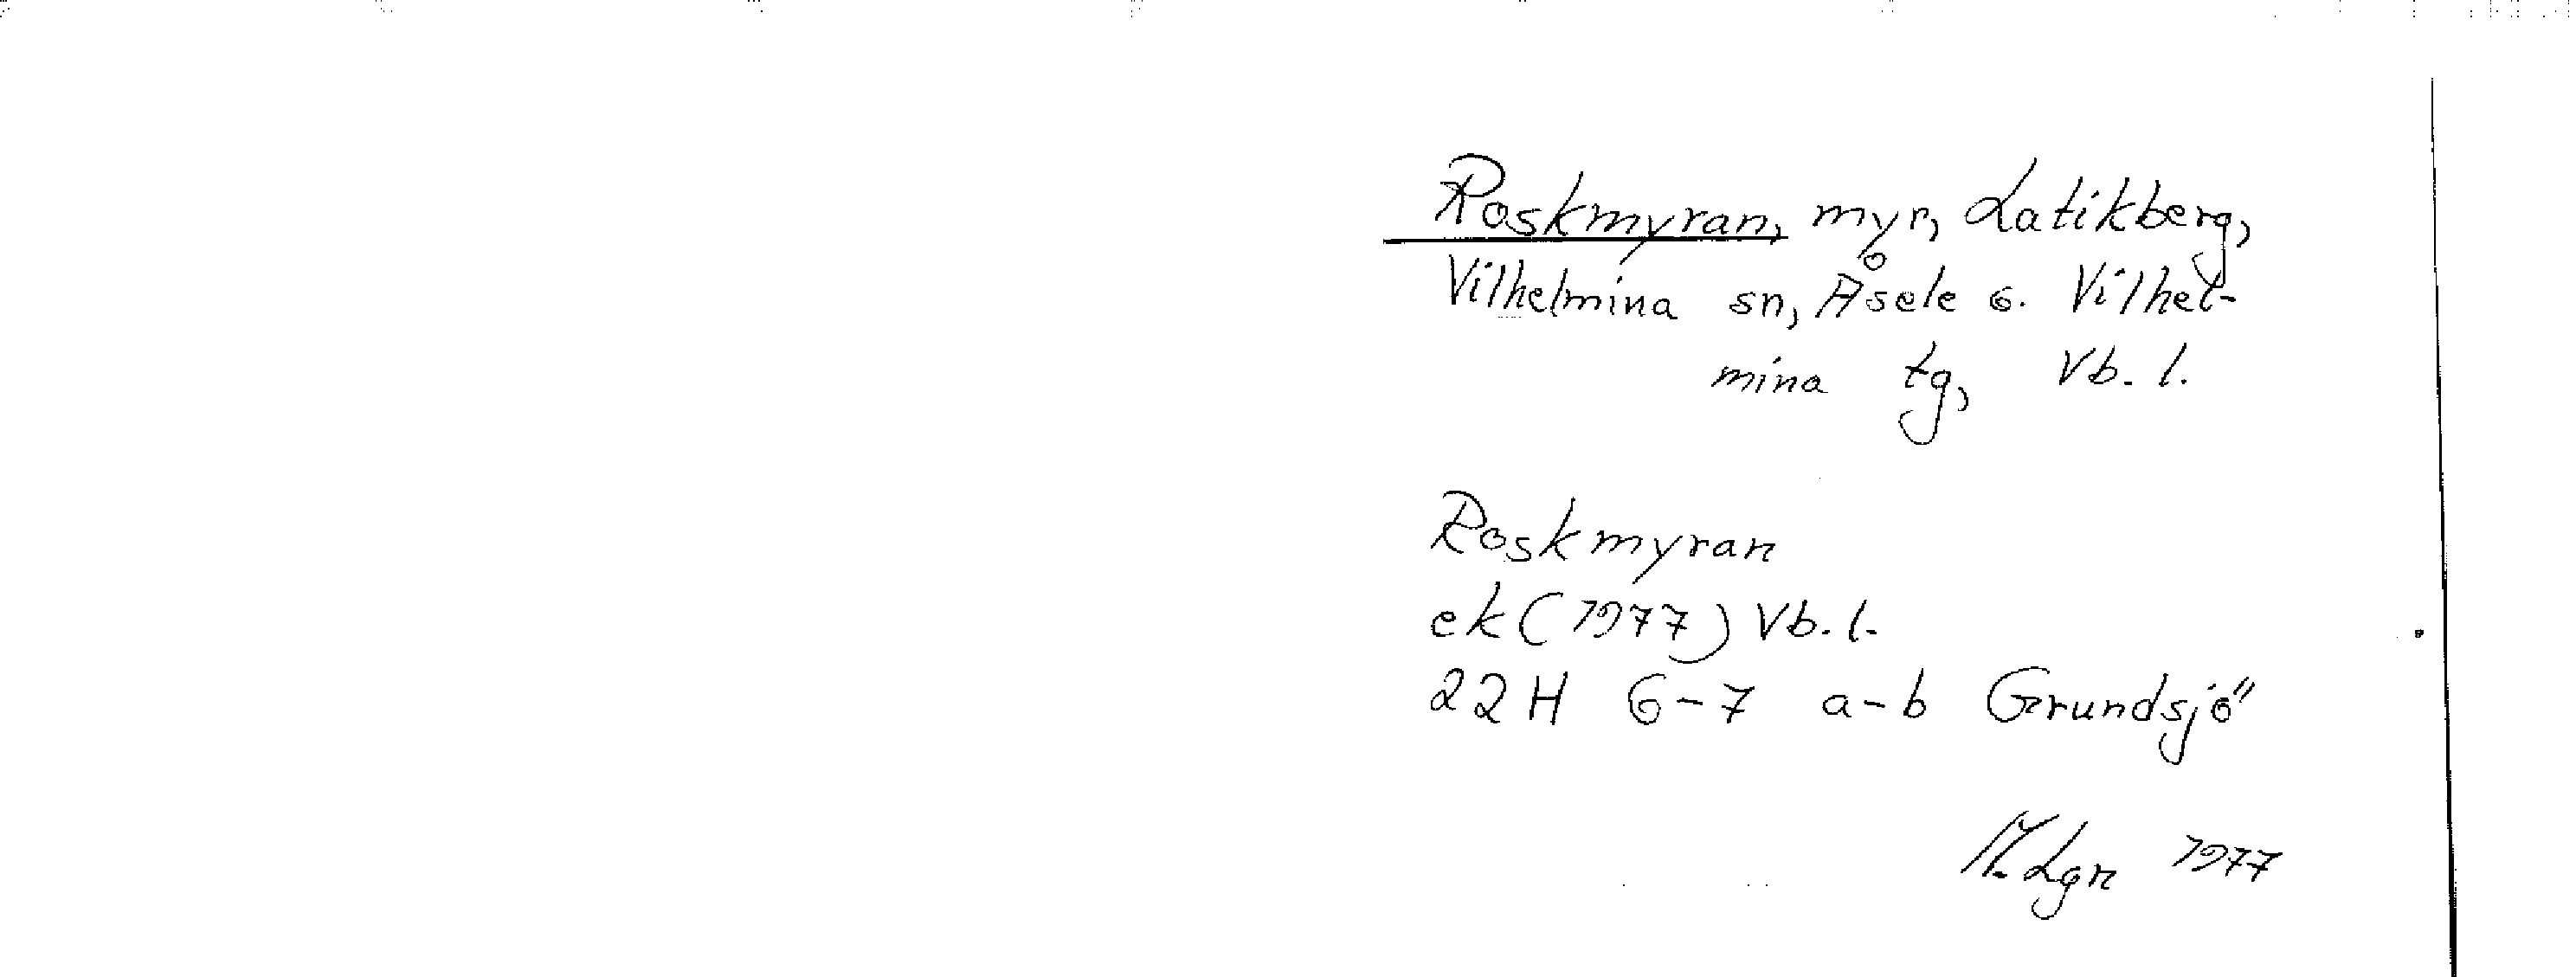 Roskmyran, myr, Latikberg,
Vilhelmina sn, Åsele o. Vilhel-
mina tg, Vb. l.
Roskmyran
ek (1977) Vb. l.
22H 6-7 a-b Grundsjö
M. Lgn 1977